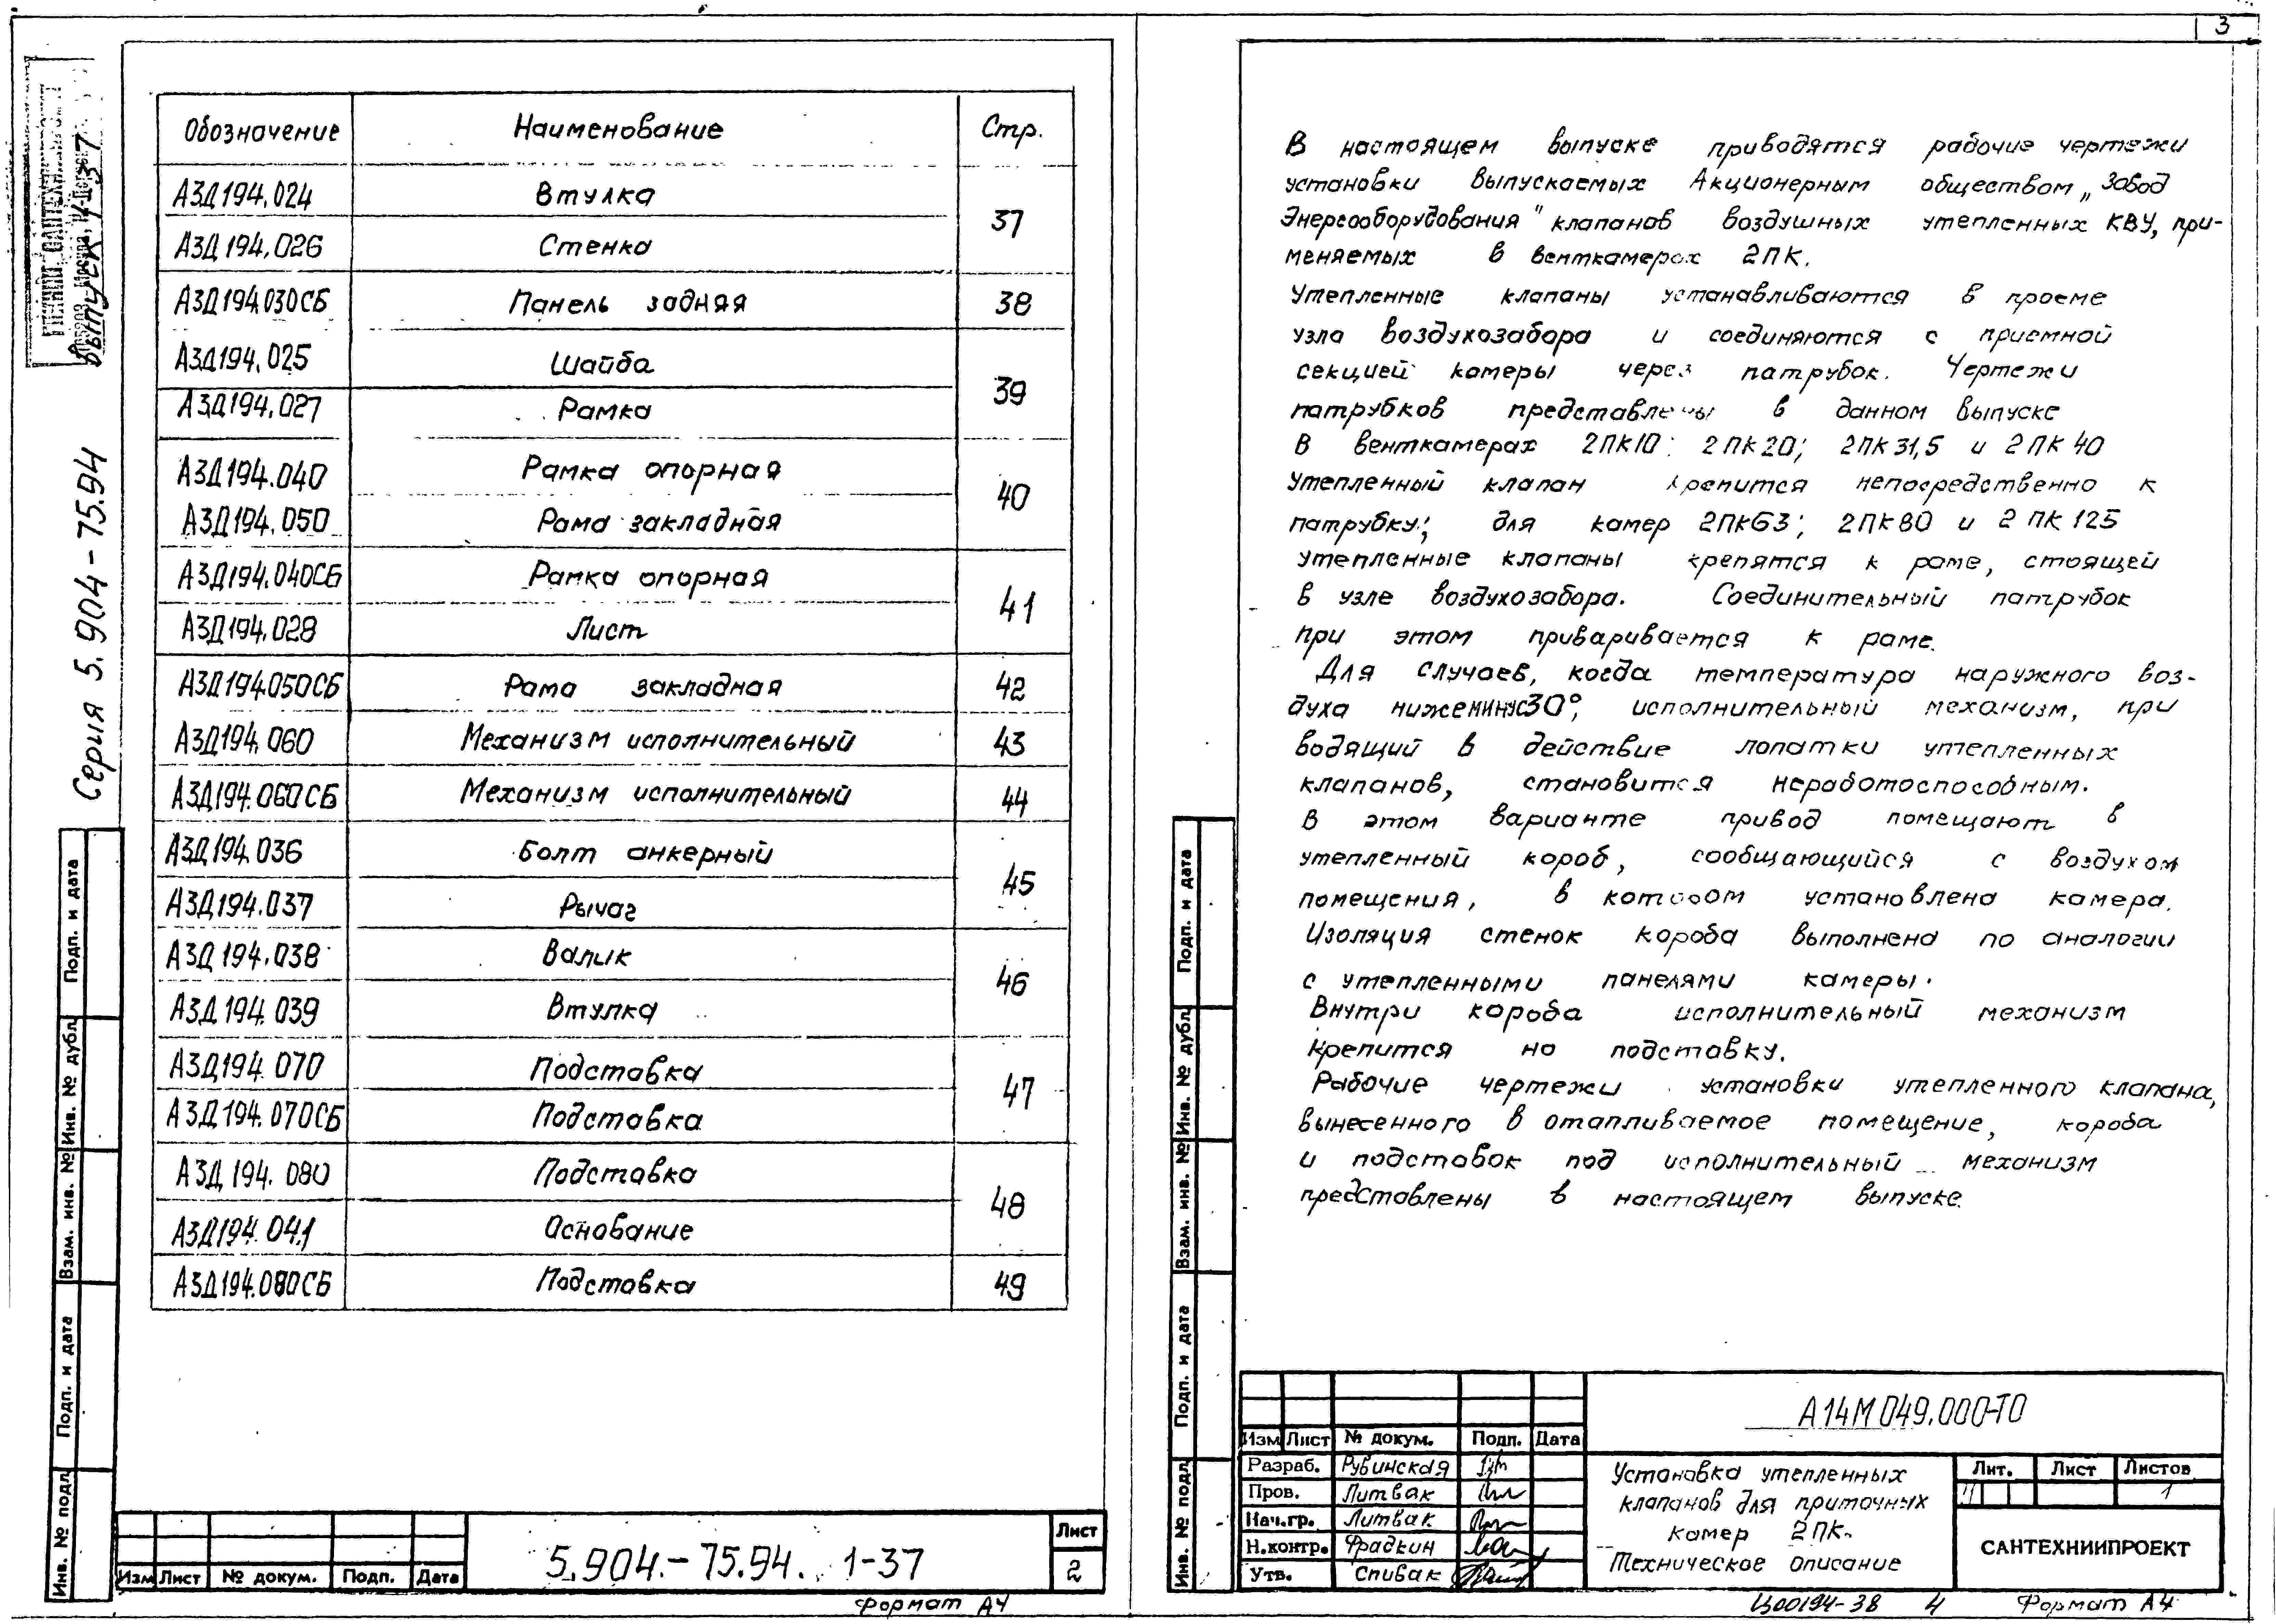 Обозначение Наименование Стр.
АЗД194.024 Втулка 37
АЗД194.026 Стенка
АЗД194.030СБ Панель задняя 38
АЗД194.025 Шайба 39
АЗД194.027 Рамка
АЗД194.040 Рамка опорная 40
АЗД194.050 Рама закладная
АЗД194.040СБ Рамка опорная 41
АЗД194.028 Лист
АЗД194.050СБ Рама закладная 42
АЗД194.060 Механизм исполнительный 43
АЗД194.060СБ Механизм исполнительный 44
АЗД194.036 Болт анкерный 45
АЗД194.037 Рычаг
АЗД194.038 Валик 46
АЗД194.039 Втулка
АЗД194.070 Подставка 47
АЗД194.070СБ Подставка
АЗД194.080 Подставка 48
АЗД194.041 Основание
АЗД194.080СБ Подставка 49
Серия 5.904-75.94
выпуск 1-37
Подп. и дата
Инв. № дубл.
Взам. инв. №
Подп. и дата
Инв. № подл.
Изм Лист № докум. Подп. Дата
5.904.-75.94. 1-37
Лист
2
Формат А4
3
В настоящем выпуске приводятся рабочие чертежи
установки выпускаемых Акционерным обществом „Завод
Энергооборудования" клапанов воздушных утепленных КВУ, при-
меняемых в венткамерах 2ПК.
Утепленные клапаны устанавливаются в проеме
узла воздухозабора и соединяются с приемной
секцией камеры через патрубок. Чертежи
патрубков представлены в данном выпуске
В венткамерах 2ПК10; 2ПК20; 2ПК31,5 и 2ПК40
утепленный клапан крепится непосредственно к
патрубку; для камер 2ПК63; 2ПК80 и 2ПК125
утепленные клапаны крепятся к раме, стоящей
в узле воздухозабора. Соединительный патрубок
при этом приваривается к раме.
Для случаев, когда температура наружного воз-
духа ниже минус 30°, исполнительный механизм, при
водящий в действие лопатки утепленных
клапанов, становится неработоспособным.
В этом варианте привод помещают в
утепленный короб, сообщающийся с воздухом
помещения, в котором установлена камера.
Изоляция стенок короба выполнена по аналогии
с утепленными панелями камеры.
Внутри короба исполнительный механизм
крепится на подставку.
Рабочие чертежи установки утепленного клапана,
вынесенного в отапливаемое помещение, короба
и подставок под исполнительный механизм
представлены в настоящем выпуске.
Подп. и дата
Инв. № дубл.
Взам. инв. №
Подп. и дата
Инв. № подл.
А14М049.000-ТО
Изм Лист № докум. Подп. Дата
Разраб. Рубинская
Пров. Литвак
Нач.гр. Литвак
Н.контр. Фрадкин
Утв. Спивак
Установка утепленных
клапанов для приточных
камер 2ПК.
Техническое описание
Лит. Лист Листов
1
САНТЕХНИИПРОЕКТ
Ц00194-38 4 Формат А4